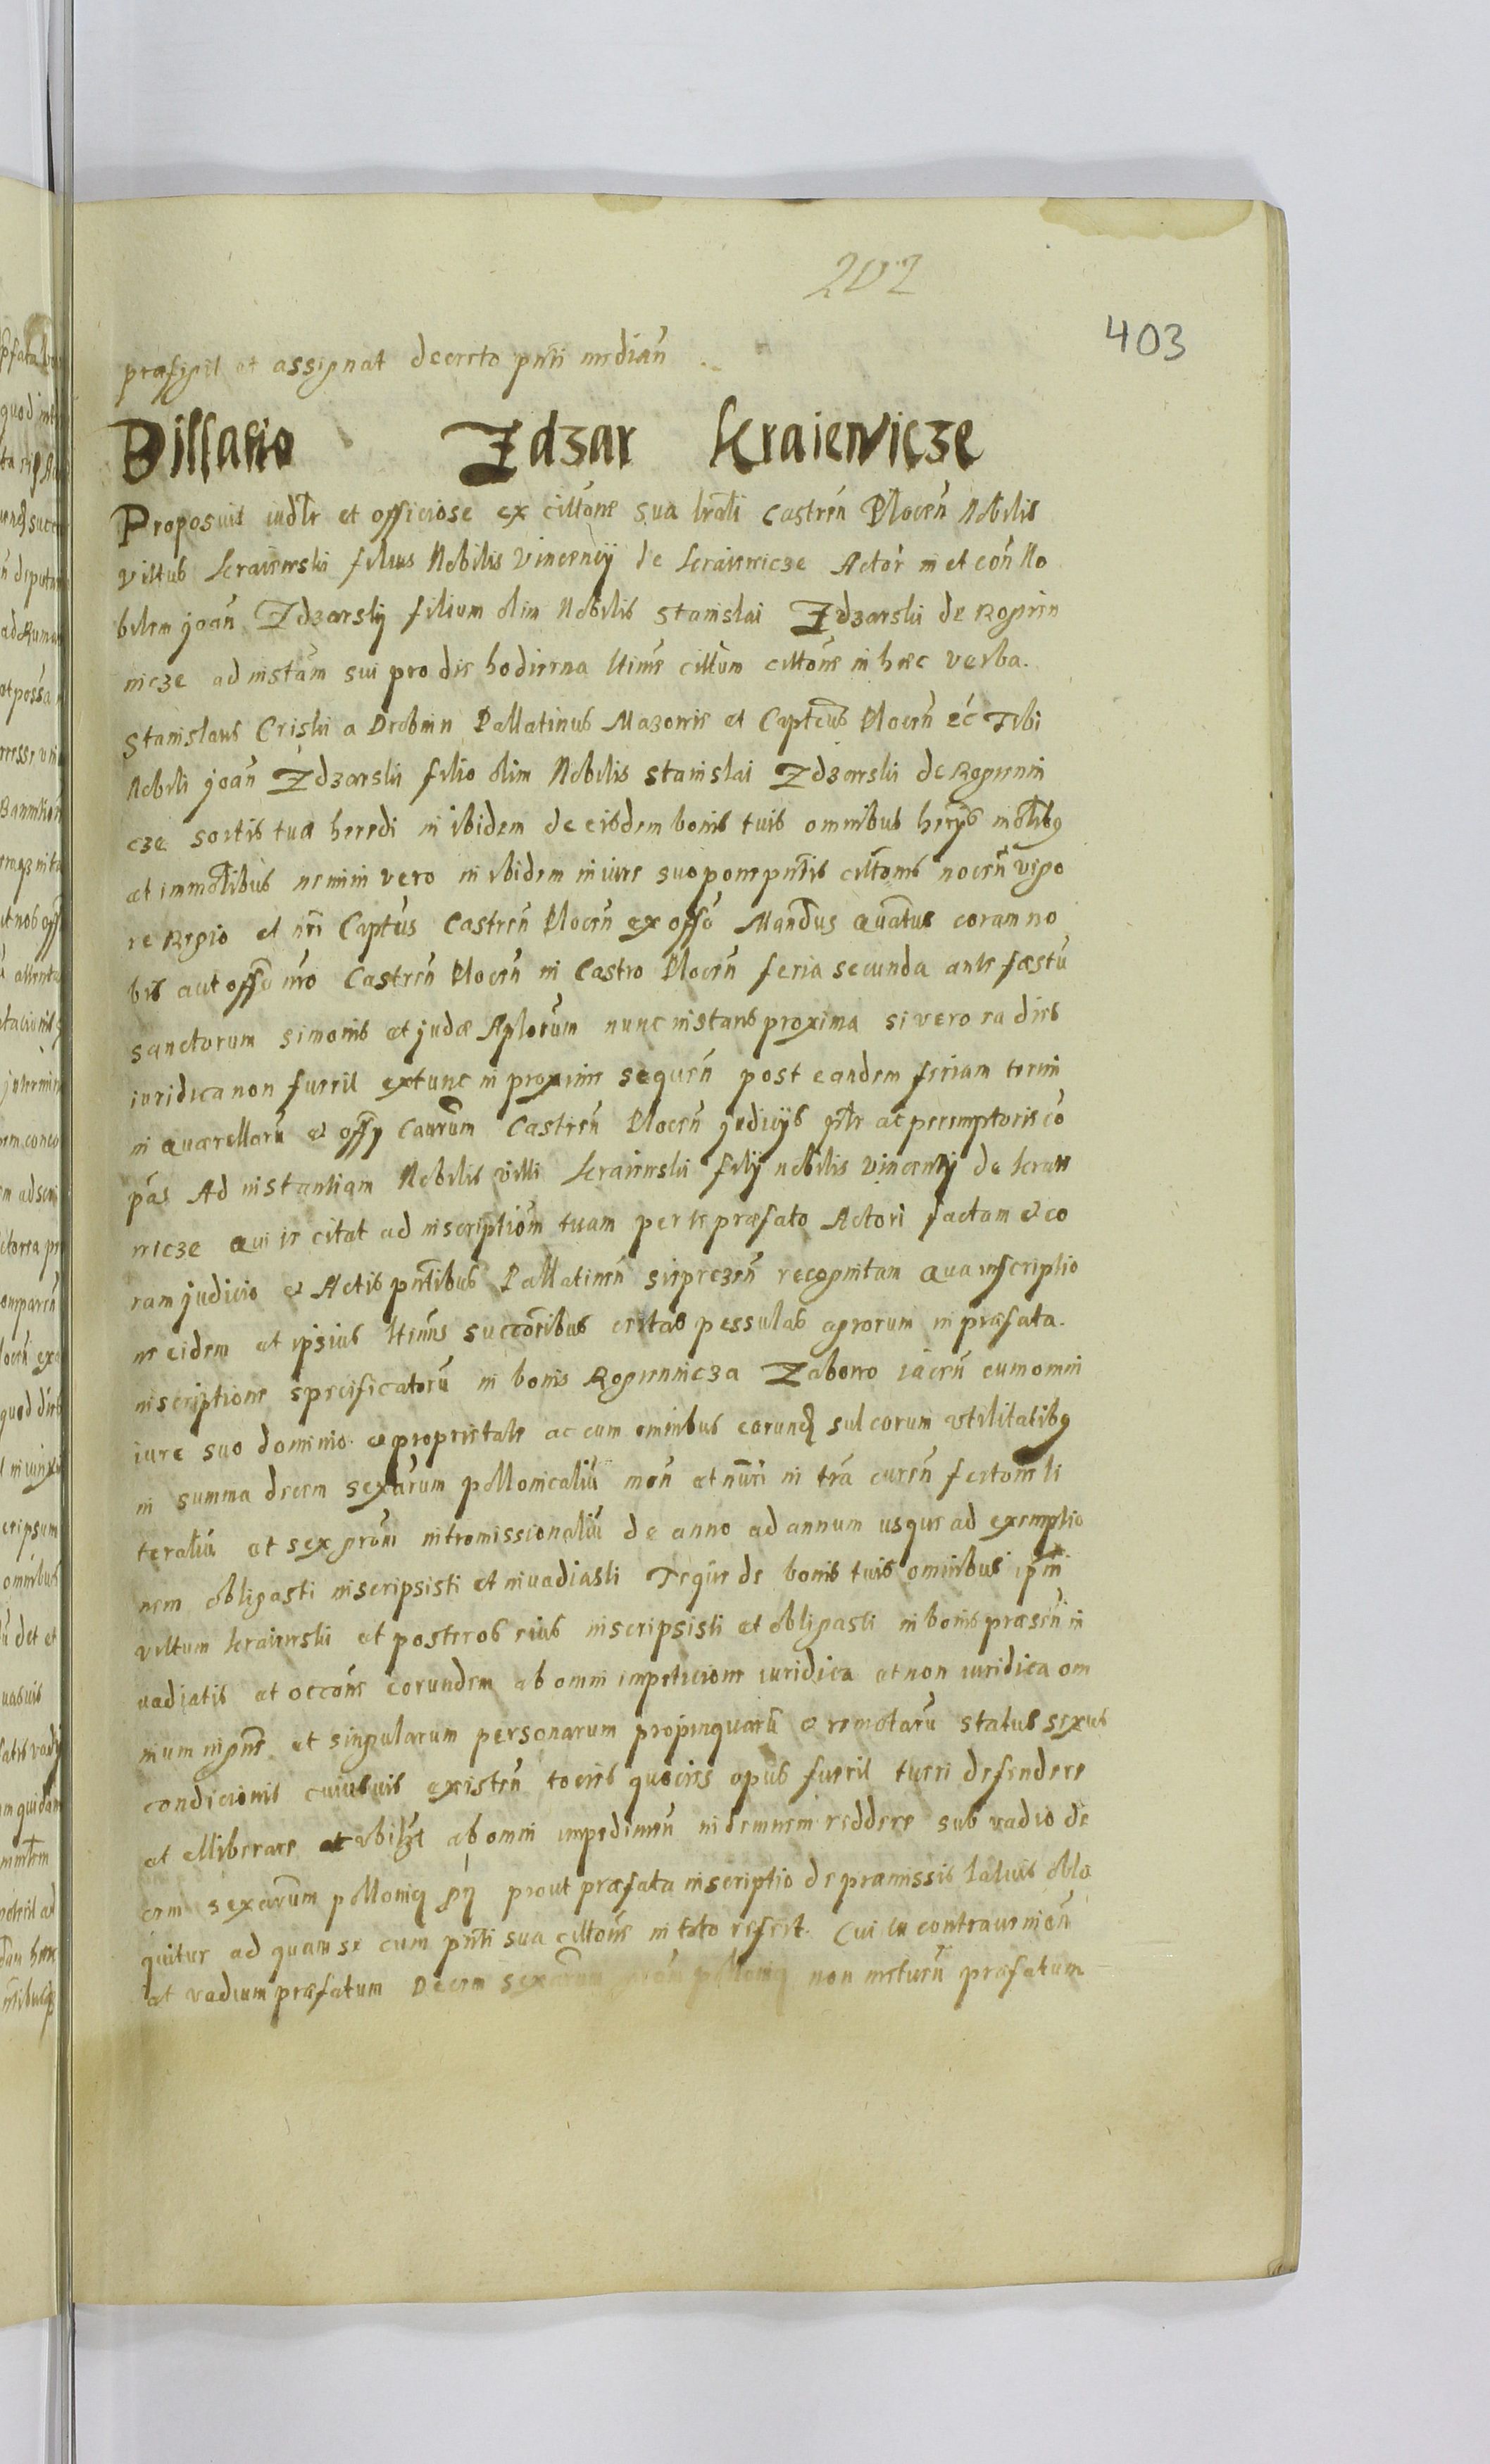 202
403
præfigit et assignat decreto pn̄ti mediañ
Dilṡatio Zdzar Kraiewicze
Proposuit iudl̄r et officiose ex cittōne sua lrāli Castreñ Ploceñ Nobilis
Vittus Kraiewski filius Nobilis Vincencij de Kraiewicze Actor in et coñ No
bilem Joañ Zdzarskij filium olim Nobilis Stanislai Zdzarski de Rogien
nicze ad instām sui pro die hodierna ltime cittum cittōne in hæc verba.
Stanislaus Criski a Drobnin Pallatinus Mazowie et Capteus Ploceñ ec̄ Tibi
Nobili Joañ Zdzarski filio olim Nobilis Stanislai Zdzarski de Rogienni
cze sortis tuæ heredi in ibidem de eisdem bonis tuis omnibus herijs mōlibꝫ
et immōlibus nemini vero in ibidem in iure suo pone pn̄tis cittonis noceñ vigo
re Regio et nr̄i Captus Castreñ Ploceñ ex offo Mandus quatus coram no
bis aut offo nr̄o Castreñ Ploceñ in Castro Ploceñ feria secunda ante fæstū
sanctorum Simonis et Judæ Aplorum nunc instans proxima si vero ea dies
iuridica non fuerit extunc in proxime sequeñ post eandem feriam termi
ni quærellarū et offij Caurum Castreñ Ploceñ judicijs pltr ac peremptorie cō
pas Ad instantiam Nobilis Vitti Kraiewski filij nobilis Vincentij de Kraie
wicze qui te citat ad inscriptiōm tuam per te præfato Actori factam et co
ram judicio et Actis pn̄tibus Pallatineñ Sieprczeñ recognitam qua inscriptio
ne eidem et ipsius ltimis succōribus certas pessulas agrorum in præfata.
inscriptione specificatorū in bonis Rogiennicza Zaborowo iaceñ cum omni
iure suo dominio et proprietate ac cum omnibus eorund̄ sulcorum utilitatibꝫ
in summa decem sexarum pollonicaliū moñ et nūri in trā cureñ fertone li
teraliū et sex grōm intromissionaliū de anno ad annum usque ad exemptio
nem obligasti inscripsisti et invadiasti Teque de bonis tuis omnibus ipm̄
Vittum Kraiewski et posteros eius inscripsisti et obligasti in bonis præseñ in
vadiatis et occōne eorundem ab omni impeticione iuridica et non iuridica om
nium in gn̄e et singularum personarum propinquarū et remotarū status sexus
condicionis cuiusvis existeñ tocies quocies opus fuerit tueri defendere
et elliberare et ubilzt ab omni impedimeñ indemnem reddere sub vadio de
cem sexarum polloniꝗ pꝗ prout præfata inscriptio de præmissis latius oblo
quitur ad quam se cum pn̄ti sua cittone in toto refert. Cui tu contraveniendō
et vadium præfatum Decem sexarum grōm polloniꝗ non metueñ præfatum